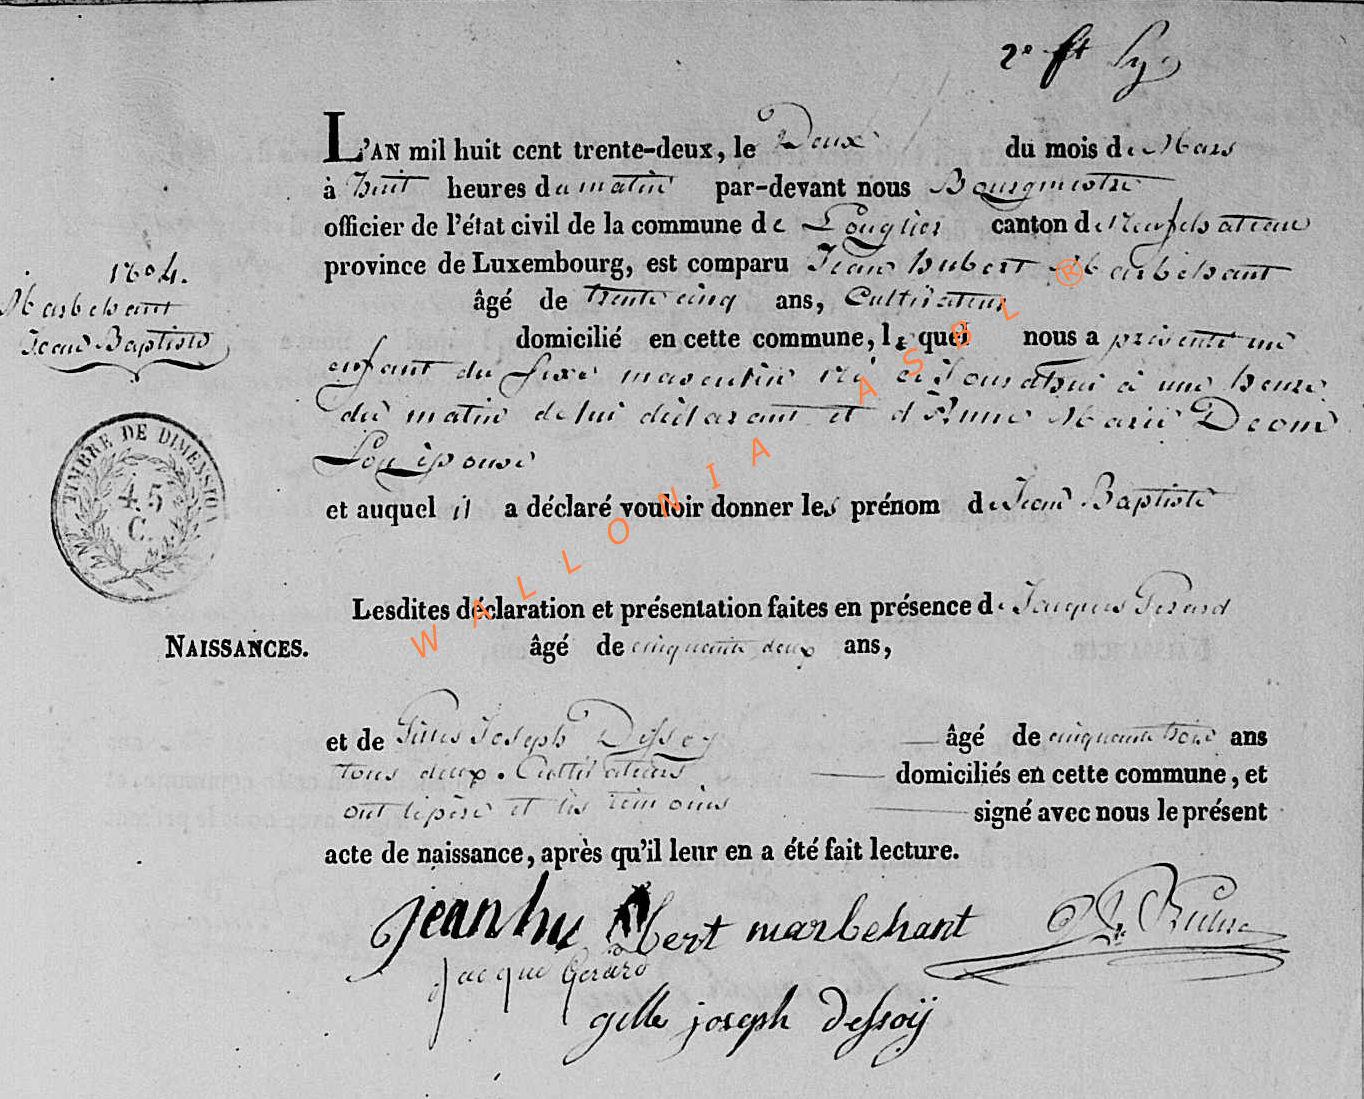 2e ft
L'AN mil huit cent trente-deux, le Deux du mois de Mars
à huit heures du matin par-devant nous Bourgmestre
officier de l'état civil de la commune de Longlier canton de Neufchateau
province de Luxembourg, est comparu Jean hubert Marbehant
âgé de trente cinq ans, Cultivateur
domicilié en cette commune, lequel nous a presenté un
enfant du sexe masculin né aujourdhui à une heure
du matin de lui déclarant et d'Anne Marie Deom
son épouse
et auquel il a déclaré vouloir donner les prénom de Jean Baptiste
Lesdites déclaration et présentation faites en présence de Jacques Gerard
âgé de cinquante deux ans,
et de Gilles Joseph Dessoy âgé de cinquante trois ans
tous deux Cultivateurs domiciliés en cette commune, et
ont le père et les témoins signé avec nous le présent
acte de naissance, après qu'il leur en a été fait lecture.
jean hubert marbehant
jacque Gerard
gille joseph dessoij
Marbehant
Jean Baptiste
TIMBRE DE DIMENSION
45
C.
NAISSANCES.
WALLONIA ASBL ®